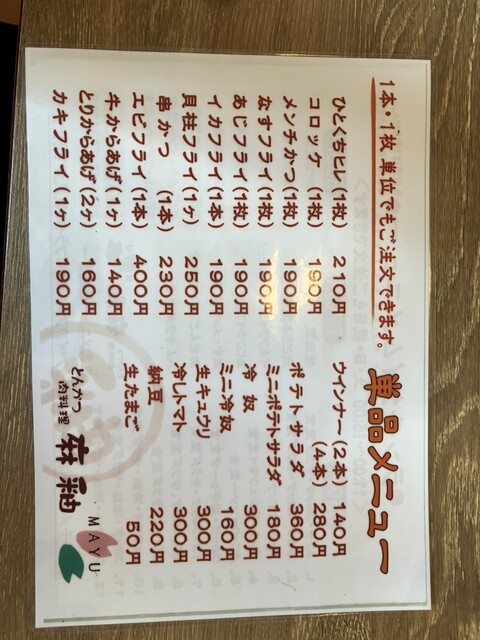 1本・1枚 単位でもご注文できます。
単品メニュー
ひとくちヒレ(1枚) 210円
コロッケ (1枚) 190円
メンチかつ(1枚) 190円
なすフライ(1枚) 190円
あじフライ(1枚) 190円
イカフライ(1本) 190円
貝柱フライ(1ヶ) 250円
串かつ (1本) 230円
エビフライ(1本) 400円
牛からあげ(1ヶ) 140円
とりからあげ(2ヶ) 160円
カキフライ(1ヶ) 190円
ウインナー(2本) 140円
(4本) 280円
ポテトサラダ 360円
ミニポテトサラダ 180円
冷奴 300円
ミニ冷奴 160円
生キュウリ 300円
冷しトマト 300円
納豆 220円
生たまご 50円
とんかつ
肉料理
麻釉
・MAYU